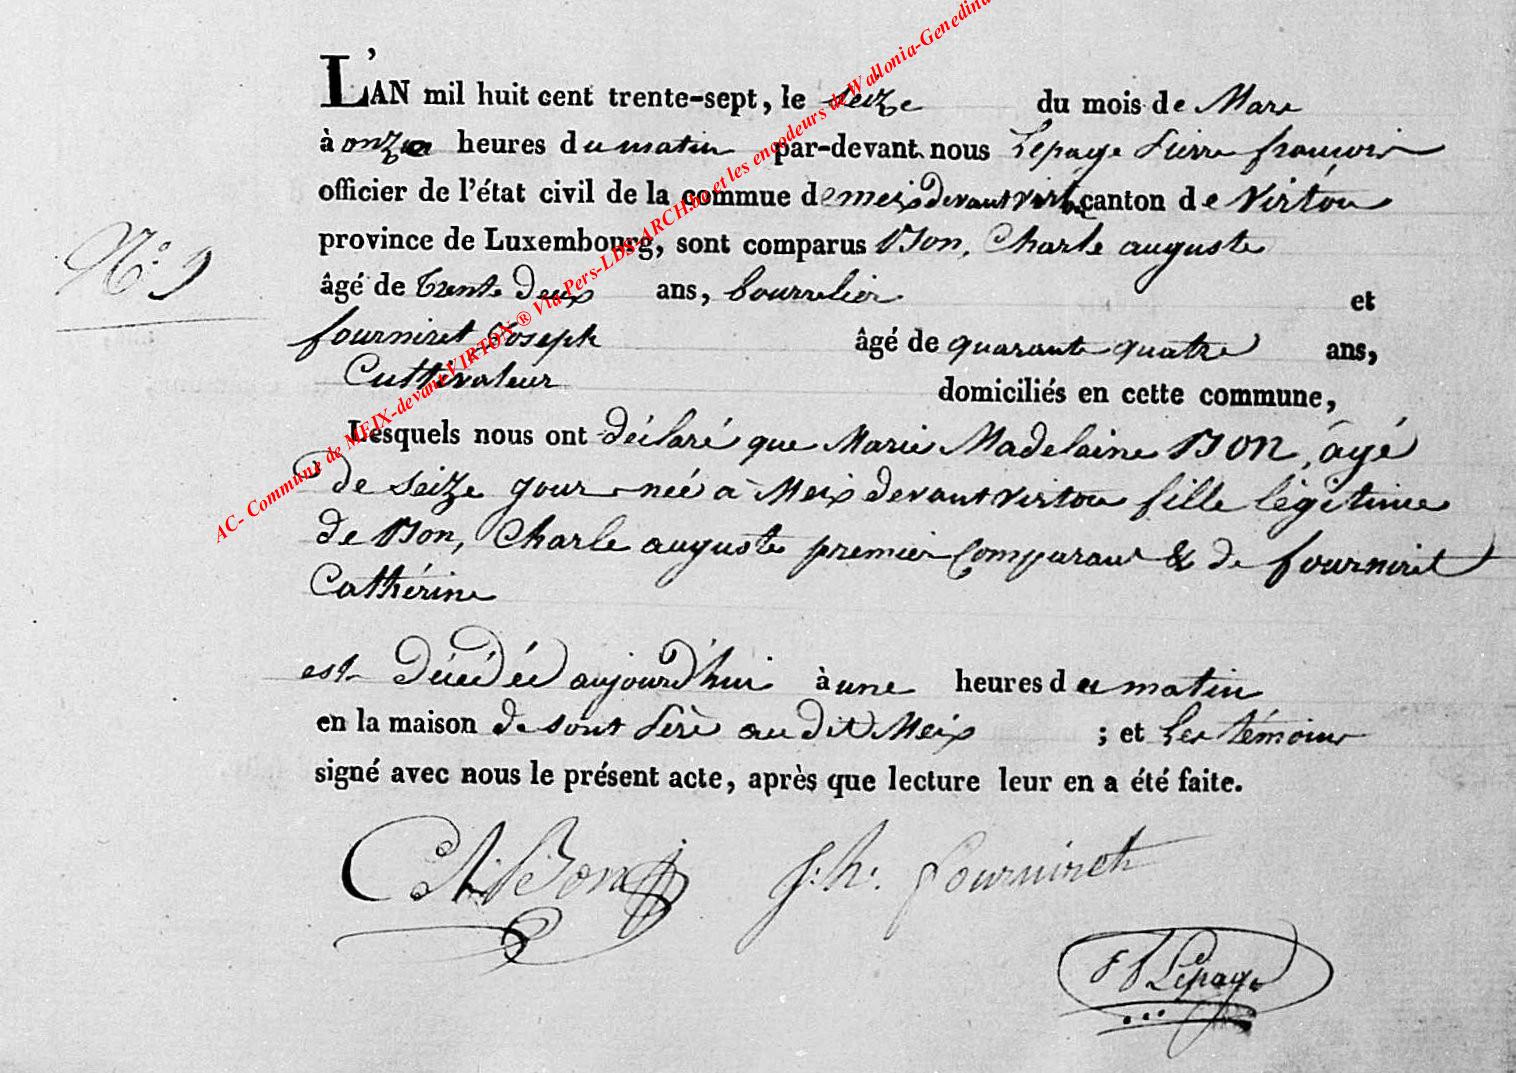 L'AN mil huit cent trente-sept, le seize du mois de Mars
à onze heures du matin par-devant nous Lepage Pierre françois
officier de l'état civil de la commue de meix devant virton canton de Virton
province de Luxembourg, sont comparus Bon, Charle auguste
N.o 9
âgé de trente deux ans, bourrelier et
fourniret Joseph âgé de quarante quatre ans,
Cultivateur domiciliés en cette commune,
Lesquels nous ont déclaré que Marie Madelaine BON, âgé
de seize jour née à Meix devant virton fille légitime
de Bon, Charle auguste premier Comparant & de fourniret
Cathérine
est décédée aujourd'hui à une heures du matin
en la maison de sont Père au dit Meix ; et les témoins
signé avec nous le présent acte, après que lecture leur en a été faite.
Ch Bon J. h. fourniret
Lepage
AC- Commune de MEIX-devant-VIRTON ® Via Pers-LDS-ARCH.be et les encodeurs de Wallonia-Genedina